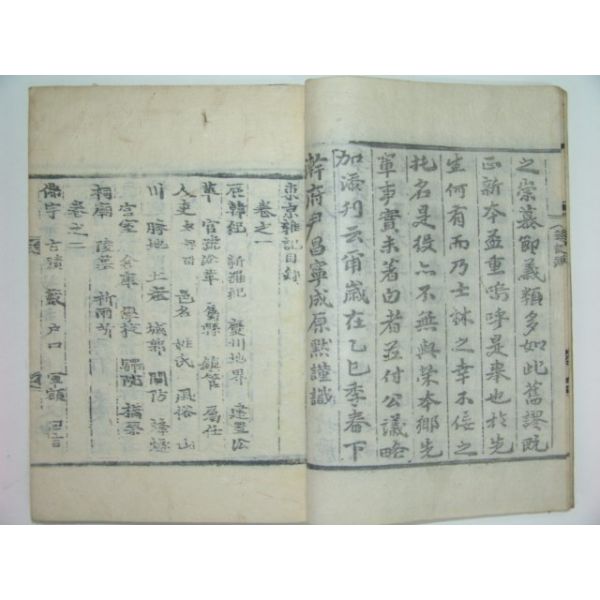 之崇慕節義類多如此舊謬旣
正新本益重嗚呼是來也於先
生何有而乃士林之幸不佞之
托名是役亦不無與榮本鄉先
軍事實未著白者并付公議略
加添刊云甫歲在乙巳季春下
澣府尹昌寧成原默謹識
東京雜記目錄
卷之一
辰韓紀 新羅紀 慶州地界 建置沿
革 官號沿革 屬縣 鎮管 屬任
邑名 姓氏 風俗 山
川 勝地 土產 城郭 關防 烽燧
宮室 倉庫 學校 驛院 橋梁
祠廟 陵墓
卷之二
佛宇 古蹟 戶口 軍額